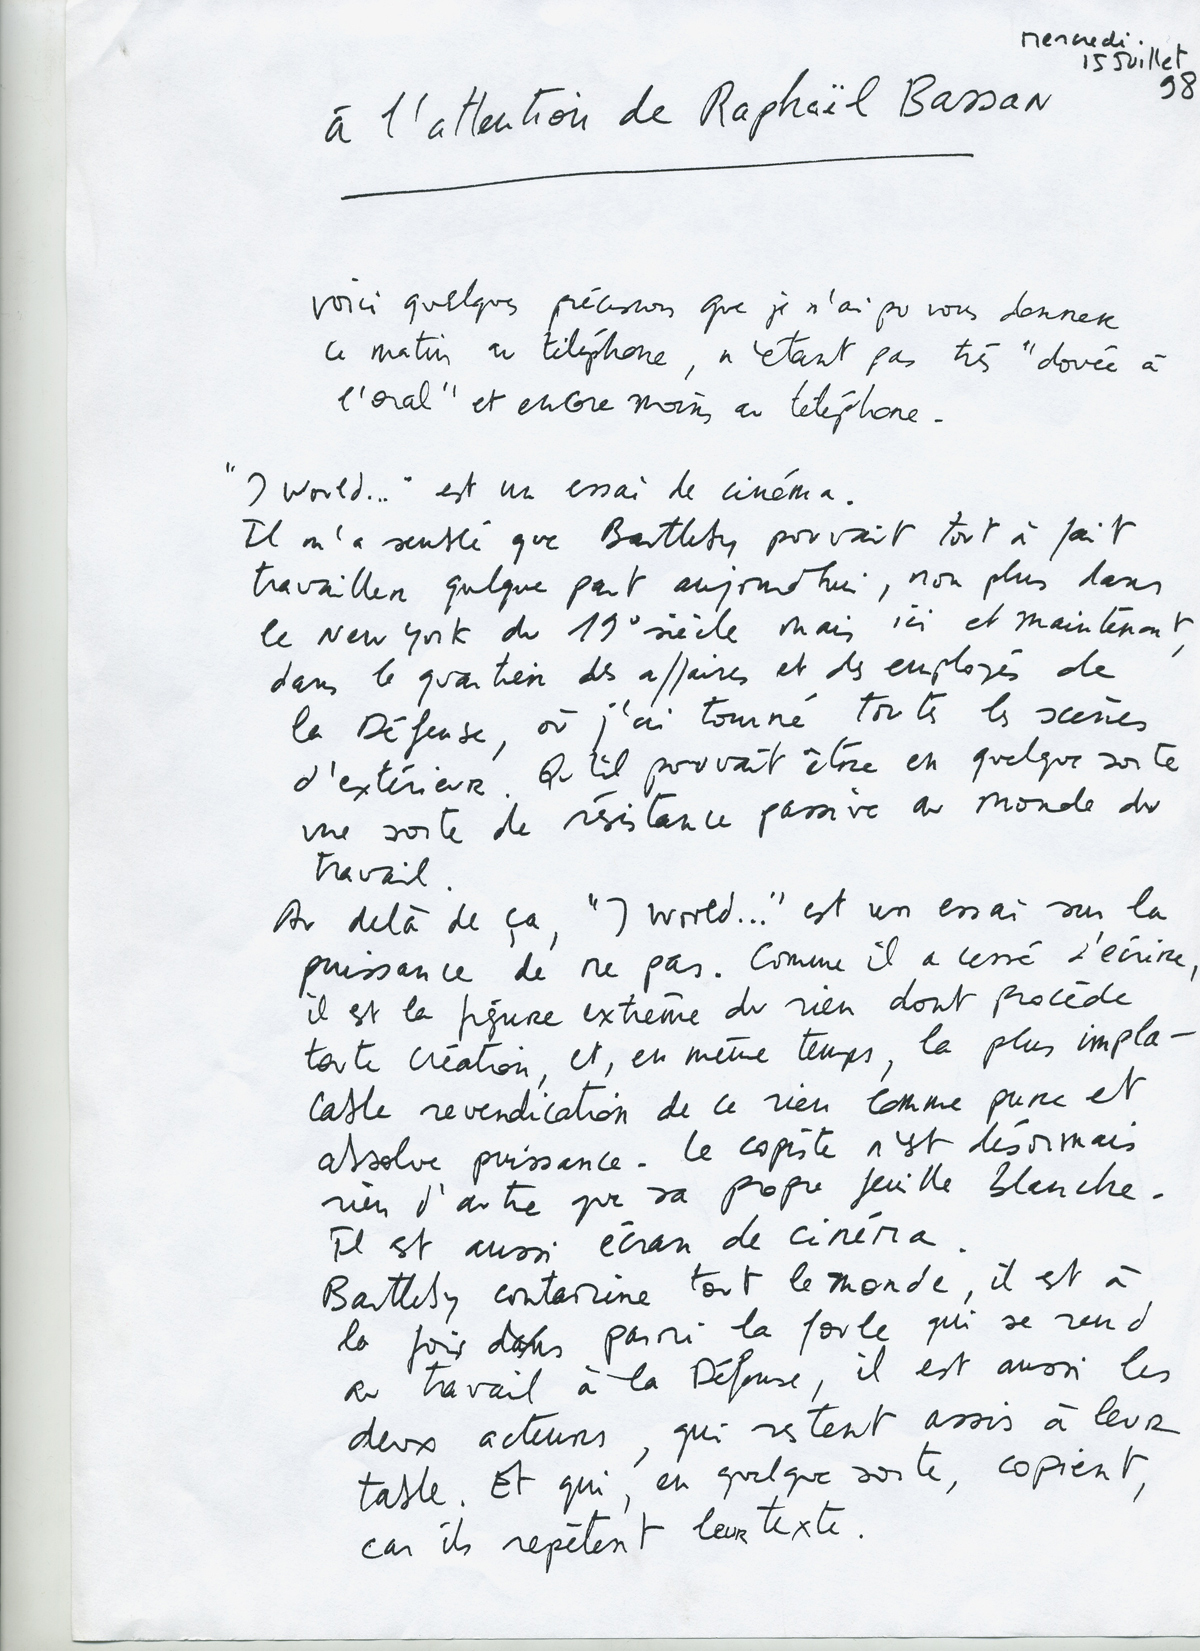 mercredi.
15 Juillet
98
à l'attention de Raphaël Bassan
voici quelques précisions que je n'ai pu vous donner
ce matin au téléphone, n'étant pas très "douée à
l'oral" et encore moins au téléphone.
"I would..." est un essai de cinéma.
Il m'a semblé que Bartleby pouvait tout à fait
travailler quelque part aujourd'hui, non plus dans
le New York du 19° siècle mais ici et maintenant,
dans le quartier des affaires et des employés de
la Défense, où j'ai tourné toutes les scènes
d'extérieur. Qu'il pouvait être en quelque sorte
une sorte de résistance passive au monde du
travail.
Au delà de ça, "I would..." est un essai sur la
puissance de ne pas. Comme il a cessé d'écrire,
il est la figure extrême du rien dont procède
toute création, et, en même temps, la plus impla-
cable revendication de ce rien comme pure et
absolue puissance. Le copiste n'est désormais
rien d'autre que sa propre feuille blanche.
Il est aussi écran de cinéma.
Bartleby contamine tout le monde, il est à
la fois parmi la foule qui se rend
au travail à la Défense, il est aussi les
deux acteurs, qui restent assis à leur
table. Et qui, en quelque sorte, copient,
car ils repètent leur texte.